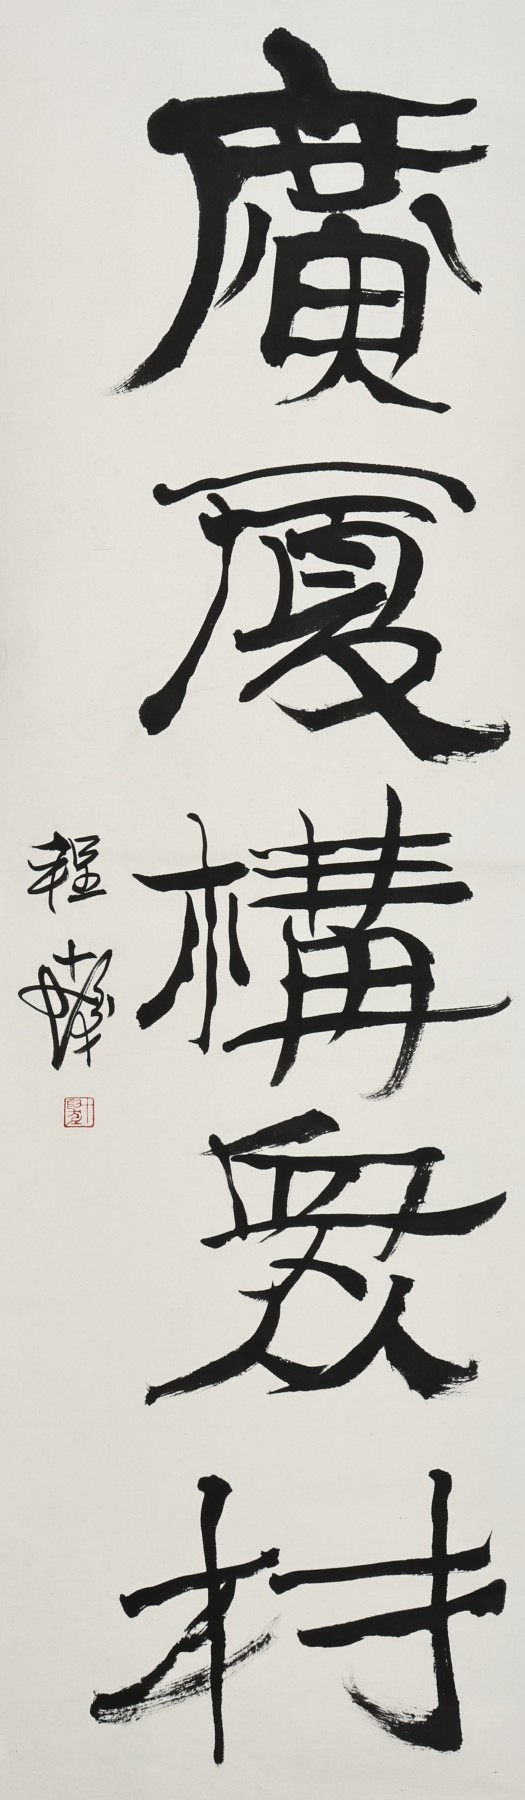 廣厦構衆材
程十髮